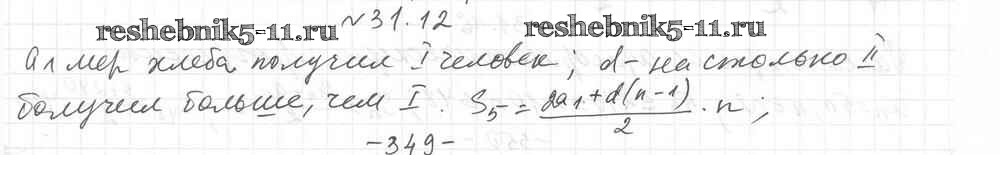 reshebnik5-11.ru №31.12 reshebnik5-11.ru
a1 мер хлеба получил I человек; d - на столько II
получил больше, чем I. S5 = (2a1 + d(n-1))/2 · n;
-349-